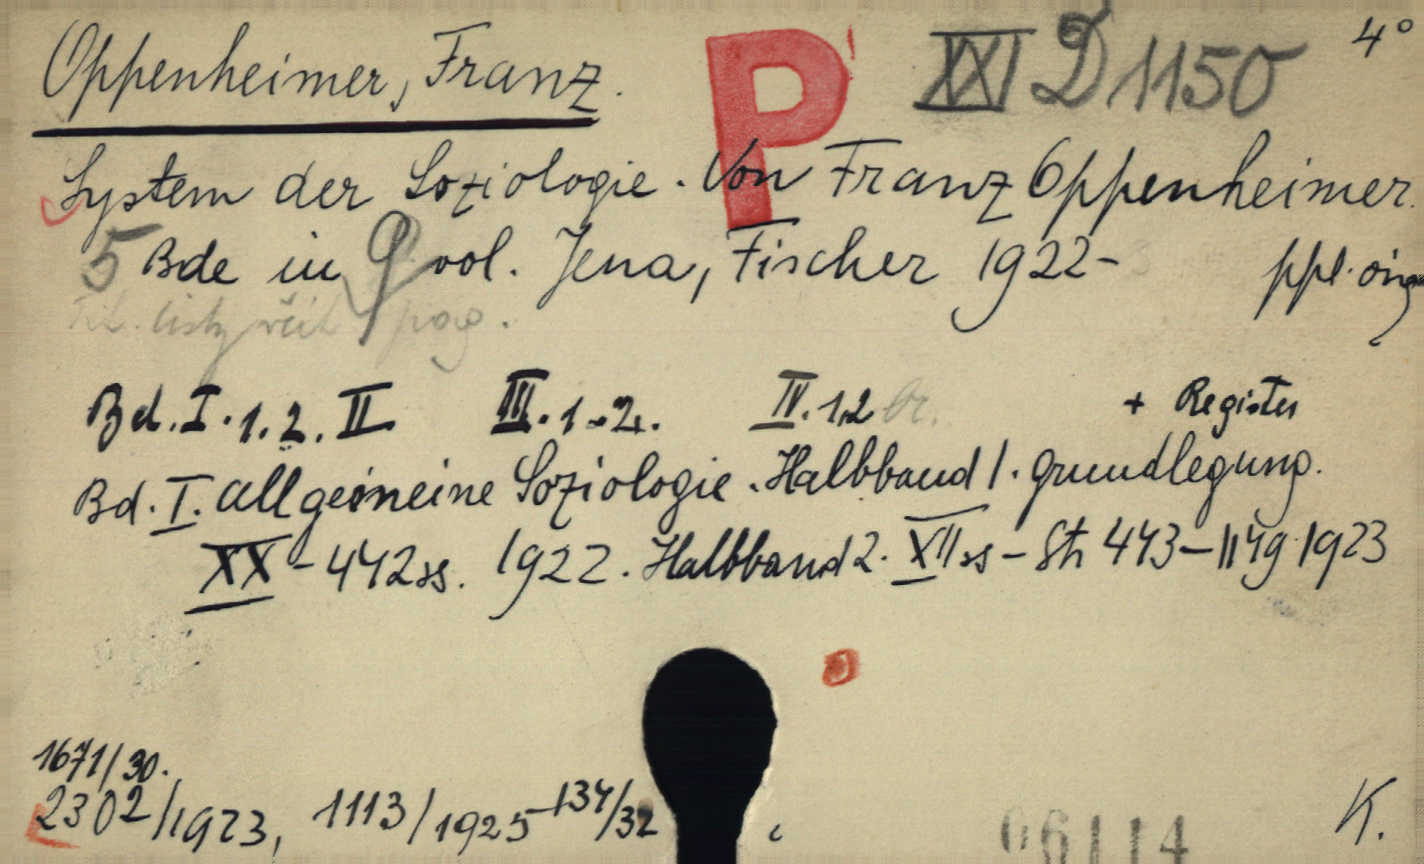 Oppenheimer, Franz. P XXI D 1150 4°
System der Soziologie. Von Franz Oppenheimer.
5 Bde in 9 vol. Jena, Fischer 1922-
listy pag.
Bd. I. 1. 2. II III. 1.-2. IV. 1,2 + Register
Bd. I. Allgemeine Soziologie. Halbband 1. Grundlegung.
XX - 442 ss. 1922. Halbband 2. XII ss - St 443-1149. 1923
1671/30.
2302/1923, 1113/1925 - 134/32
06114 K.